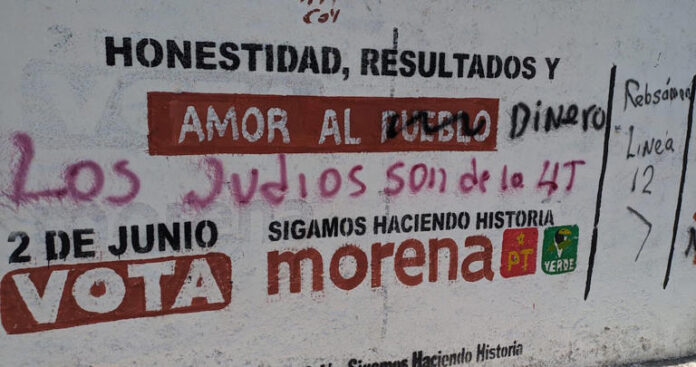 COY
HONESTIDAD, RESULTADOS Y
AMOR AL PUEBLO DINERO
Los Judios son de la 4T
2 DE JUNIO
VOTA
SIGAMOS HACIENDO HISTORIA
morena PT VERDE
Rebsámen
Linea
12
Sigamos Haciendo Historia